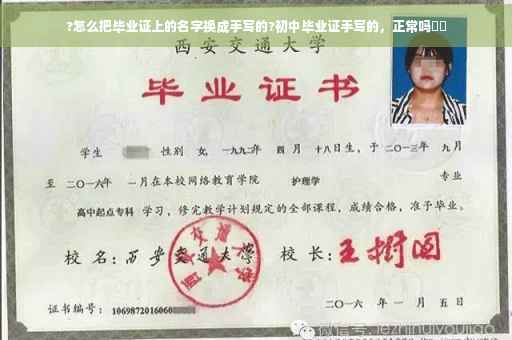 ?怎么把毕业证上的名字换成手写的?初中毕业证手写的，正常吗
西安交通大学
毕业证书
学生 性别 女, 一九九二年 四月 十八日生，于二〇一三年 九月
至 二〇一六年 一月在本校网络教育学院 护理学 专业
高中起点专科 学习，修完教学计划规定的全部课程，成绩合格，准予毕业。
校名：西安交通大学 校长：王树国
证书编号：1069872016060
二〇一六年 一月五日
微信号: jezhinuiyoujiao